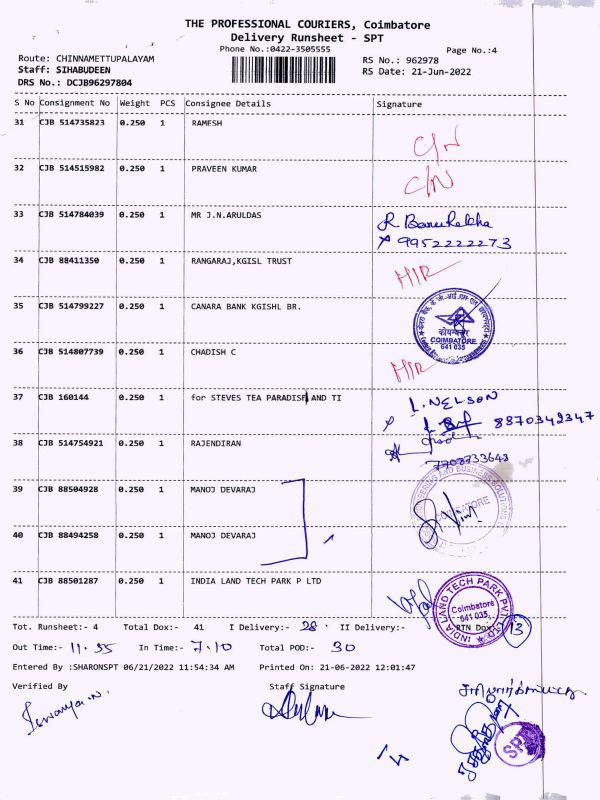 THE PROFESSIONAL COURIERS, Coimbatore
Delivery Runsheet - SPT
Phone No.:0422-3505555
Page No.:4
Route: CHINNAMETTUPALAYAM
RS No.: 962978
Staff: SIHABUDEEN
RS Date: 21-Jun-2022
DRS No.: DCJB96297804
S No Consignment No Weight PCS Consignee Details Signature
31 CJB 514735823 0.250 1 RAMESH
C/N
32 CJB 514515982 0.250 1 PRAVEEN KUMAR
C/N
33 CJB 514784039 0.250 1 MR J.N.ARULDAS
R Banurekha
9952222273
34 CJB 88411350 0.250 1 RANGARAJ,KGISL TRUST
35 CJB 514799227 0.250 1 CANARA BANK KGISHL BR.
कोयम्बत्तूर
COIMBATORE
641 035
36 CJB 514807739 0.250 1 CHADISH C
37 CJB 160144 0.250 1 for STEVES TEA PARADISE AND TI
L. NELSON
8870342347
38 CJB 514754921 0.250 1 RAJENDIRAN
7708733643
39 CJB 88504928 0.250 1 MANOJ DEVARAJ
COIMBATORE
40 CJB 88494258 0.250 1 MANOJ DEVARAJ
41 CJB 88501287 0.250 1 INDIA LAND TECH PARK P LTD
INDIA LAND TECH PARK PVT LTD
Coimbatore
641 035.
Tot. Runsheet:- 4 Total Dox:- 41 I Delivery:- 28 II Delivery:- RTN Dox:- 13
Out Time:- 11.55 In Time:- 7.10 Total POD:- 30
Entered By :SHARONSPT 06/21/2022 11:54:34 AM Printed On: 21-06-2022 12:01:47
Verified By Staff Signature
SPT